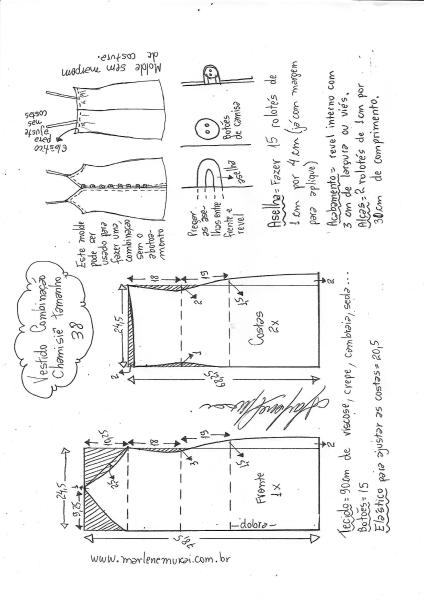 Vestido Combinação
Chamisie Tamanho
38
Este molde
pode ser
usado para
fazer uma
combinação
sem o
abotoa-
mento
Elástico
para
ajuste
nas
costas
Molde sem margem
de costura.
Pregar
as ase-
lhas entre
frente e
revel
aselha
Botões
de camisa
Aselha = Fazer 15 rolotés de
1cm por 4cm (já com margem
para aplique)
Acabamento = revel interno com
3 cm de largura ou viés.
Alças = 2 rolotés de 1cm por
30cm de comprimento.
24,5
2
18
19
2
1
1,5
2
Costas
2x
24,5
9,25
10,25
18
19
3
1,5
2
Frente
1x
dobra
78,5
www.marlenemukai.com.br
Tecido = 90cm de viscose, crepe, cambraia, seda...
Botões = 15
Elástico para ajustar as costas = 20,5